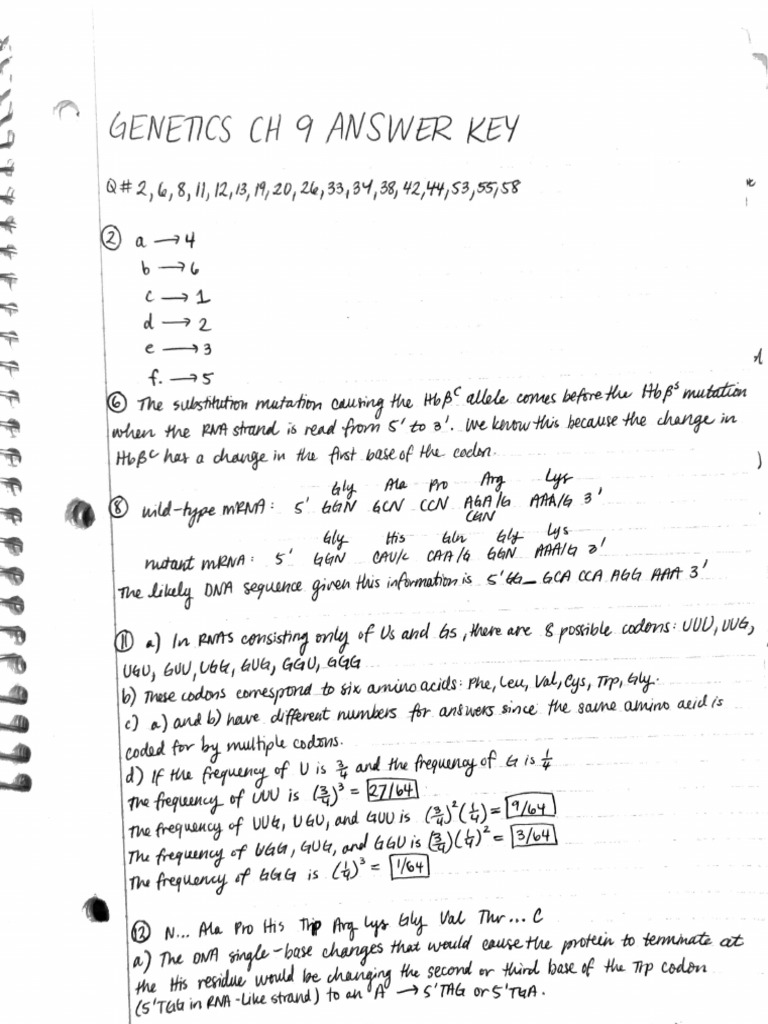 GENETICS CH 9 ANSWER KEY
Q# 2, 6, 8, 11, 12, 13, 19, 20, 26, 33, 34, 38, 42, 44, 53, 55, 58
② a → 4
b → 6
c → 1
d → 2
e → 3
f. → 5
⑥ The substitution mutation causing the Hbβᶜ allele comes before the Hbβˢ mutation
when the RNA strand is read from 5' to 3'. We know this because the change in
Hbβᶜ has a change in the first base of the codon.
Gly Ala Pro Arg Lys
⑧ wild-type mRNA: 5' GGN GCN CCN AGA/G AAA/G 3'
CGN
Gly His Gln Gly Lys
mutant mRNA: 5' GGN CAU/C CAA/G GGN AAA/G 3'
The likely DNA sequence given this information is 5' GG_ GCA CCA AGG AAA 3'
⑪ a) In RNAs consisting only of Us and Gs, there are 8 possible codons: UUU, UUG,
UGU, GUU, UGG, GUG, GGU, GGG
b) These codons correspond to six amino acids: Phe, Leu, Val, Cys, Trp, Gly.
c) a) and b) have different numbers for answers since the same amino acid is
coded for by multiple codons.
d) If the frequency of U is 3/4 and the frequency of G is 1/4
The frequency of UUU is (3/4)³ = 27/64
The frequency of UUG, UGU, and GUU is (3/4)²(1/4) = 9/64
The frequency of UGG, GUG, and GGU is (3/4)(1/4)² = 3/64
The frequency of GGG is (1/4)³ = 1/64
⑫ N... Ala Pro His Trp Arg Lys Gly Val Thr... C
a) The DNA single-base changes that would cause the protein to terminate at
the His residue would be changing the second or third base of the Trp codon
(5'TGG in RNA-like strand) to an A → 5'TAG or 5'TGA.